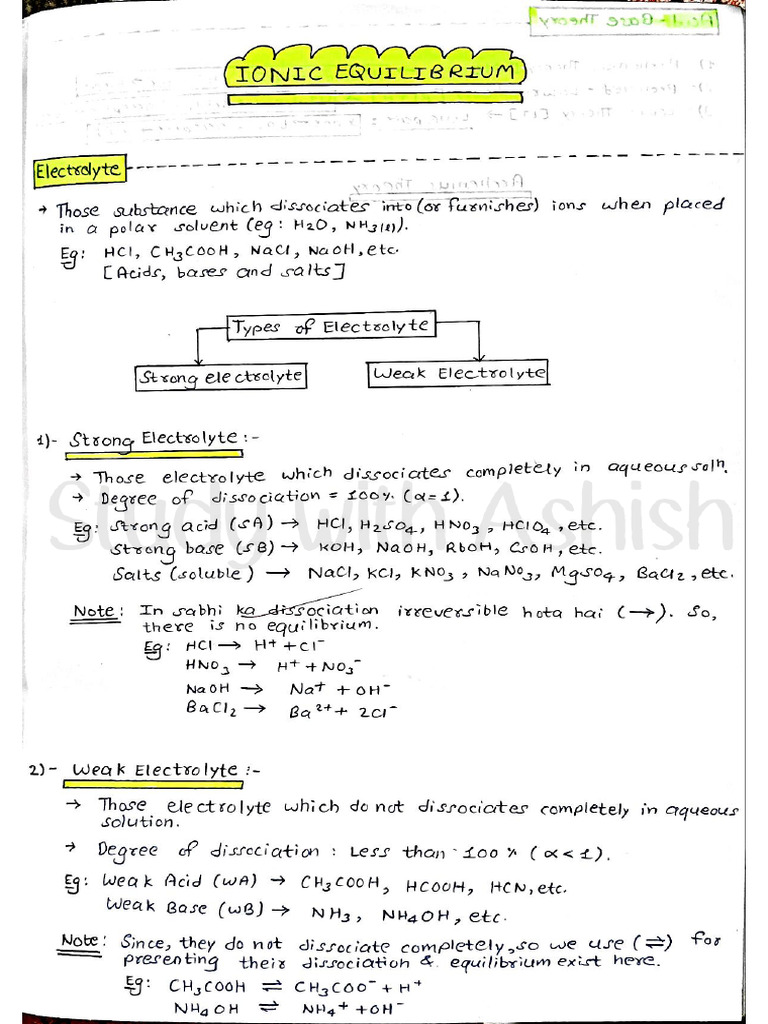 IONIC EQUILIBRIUM
Electrolyte
→ Those substance which dissociates into (or furnishes) ions when placed
in a polar solvent (eg: H2O, NH3(l)).
Eg: HCl, CH3COOH, NaCl, NaOH, etc.
[Acids, bases and salts]
Types of Electrolyte
Strong electrolyte
Weak Electrolyte
1)- Strong Electrolyte :-
→ Those electrolyte which dissociates completely in aqueous solⁿ.
→ Degree of dissociation = 100% (α=1).
Eg: Strong acid (SA) → HCl, H2SO4, HNO3, HClO4, etc.
Strong base (SB) → KOH, NaOH, RbOH, CsOH, etc.
Salts (soluble) → NaCl, KCl, KNO3, NaNO3, MgSO4, BaCl2, etc.
Study with Ashish
Note: In sabhi ka dissociation irreversible hota hai (→). So,
there is no equilibrium.
Eg: HCl → H⁺ + Cl⁻
HNO3 → H⁺ + NO3⁻
NaOH → Na⁺ + OH⁻
BaCl2 → Ba²⁺ + 2Cl⁻
2)- Weak Electrolyte :-
→ Those electrolyte which do not dissociates completely in aqueous
solution.
→ Degree of dissociation : Less than 100% (α<1).
Eg: Weak Acid (WA) → CH3COOH, HCOOH, HCN, etc.
Weak Base (WB) → NH3, NH4OH, etc.
Note: Since, they do not dissociate completely, so we use (⇌) for
presenting their dissociation & equilibrium exist here.
Eg: CH3COOH ⇌ CH3COO⁻ + H⁺
NH4OH ⇌ NH4⁺ + OH⁻